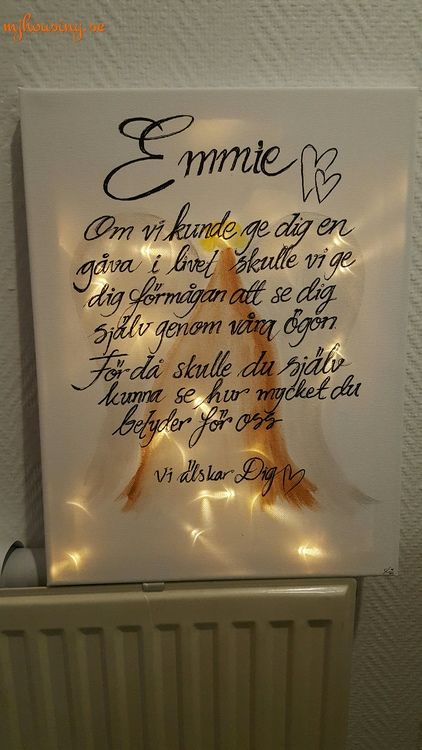 mjhousing.se
Emmie
Om vi kunde ge dig en
gåva i livet skulle vi ge
dig förmågan att se dig
själv genom våra ögon
För då skulle du själv
kunna se hur mycket du
betyder för oss
Vi älskar Dig